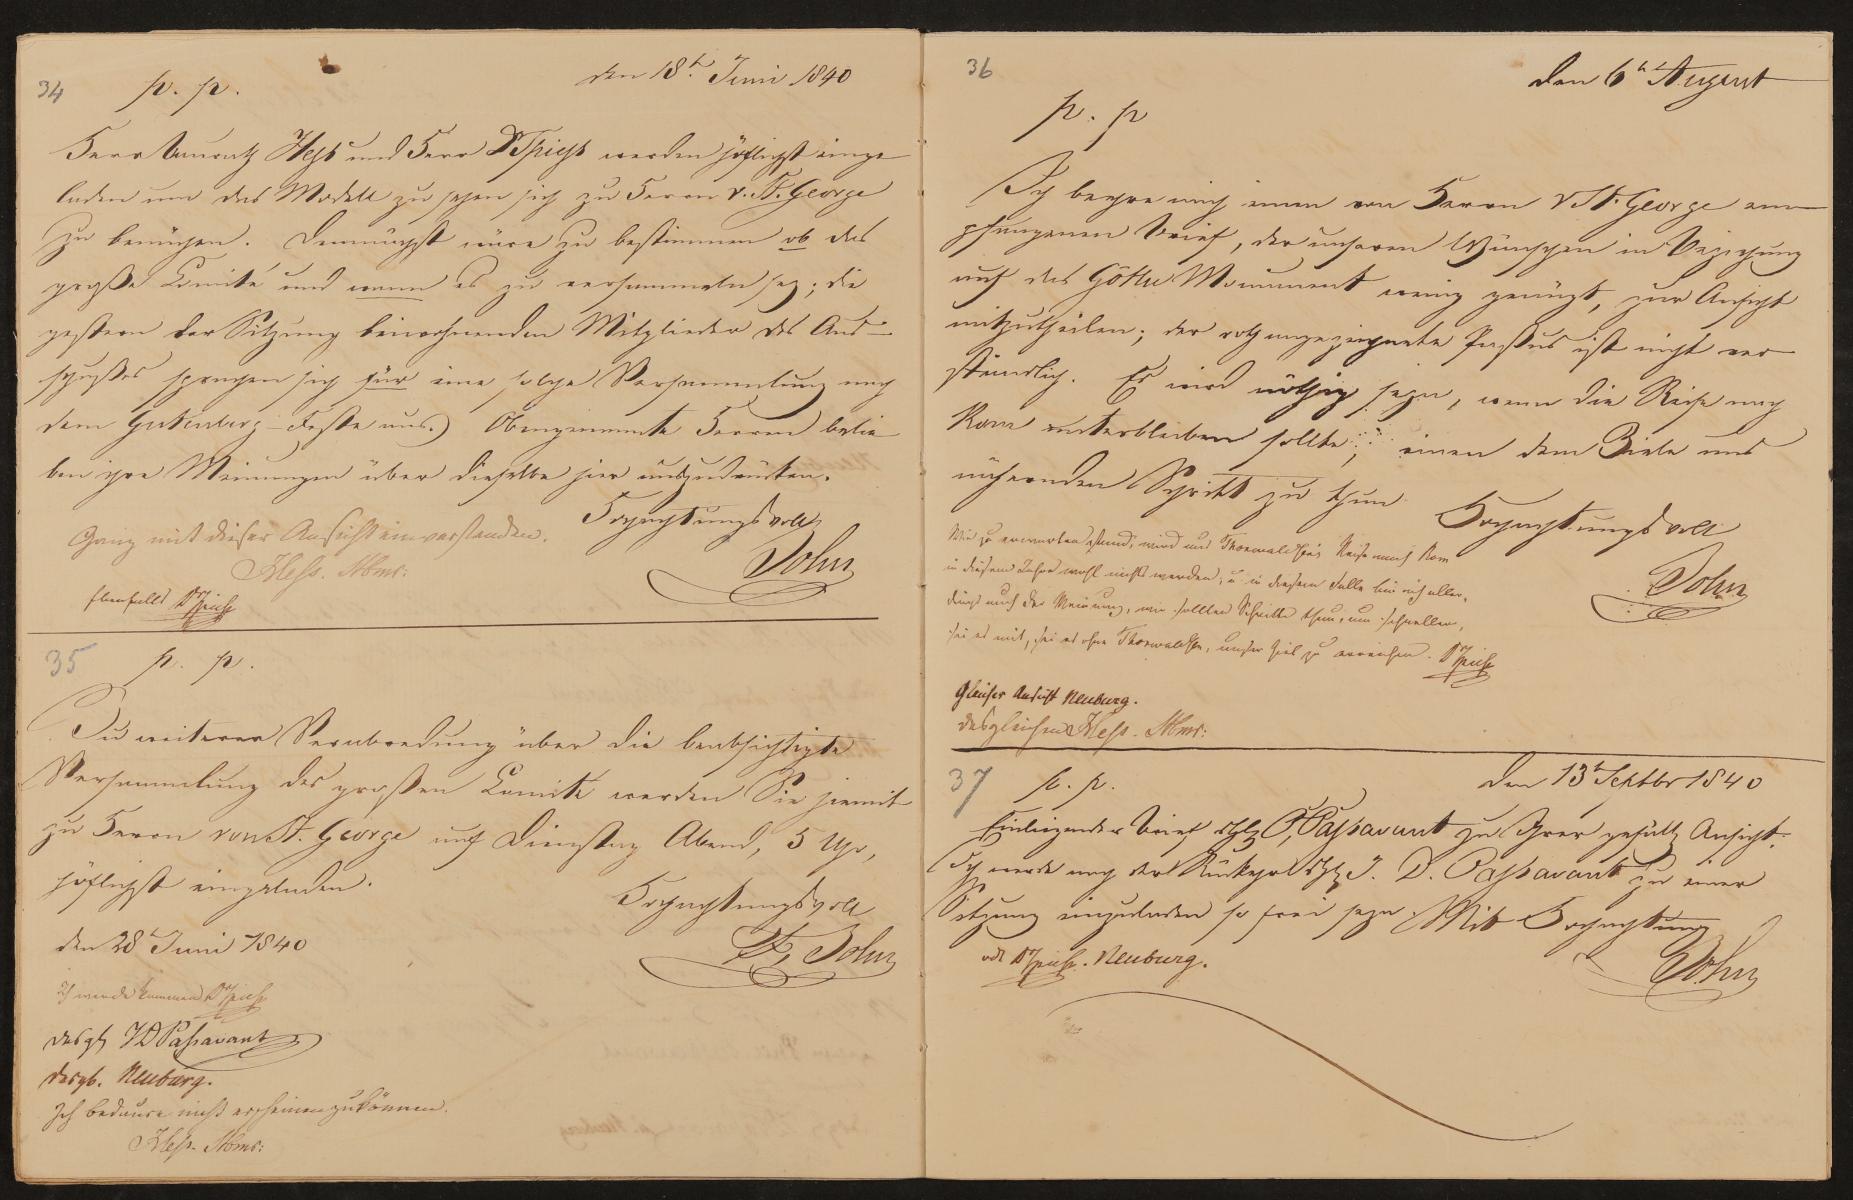 34
p. p.
den 18t. Juni 1840
Herr Baurath Hess und Herr Dr Spiess werden höflichst einge
laden um das Modell zu sehen sich zu Herrn v. St. George
zu bemühen. Demnächst wäre zu bestimmen ob das
große Comité und wann es zu versammeln sey; die
gestern der Sitzung beiwohnenden Mitglieder des Aus-
schußes sprachen sich für eine solche Versammlung nach
dem Gutenberg-Feste aus.) Obengenannte Herren belie
ben ihre Meinungen über dieselbe hier auszudrücken.
Hochachtungsvoll
John
Ganz mit dieser Ansicht einverstanden.
Hess.
Ebenfalls Dr Spiess
35
p. p.
Zu weiterer Verabredung über die beabsichtigte
Versammlung des großen Comité werden Sie hiemit
zu Herrn von St. George auf Dienstag Abend, 5 Uhr,
höflichst eingeladen.
Hochachtungsvoll
John
den 28t Juni 1840
Ich werde kommen Dr Spiess
desgl JD Passavant
desgl. Neuburg.
Ich bedaure nicht erscheinen zu können.
Hess.
36
den 6t August
p. p
Ich beehre mich einen von Herrn v St. George em
pfangenen Brief, der unseren Wünschen in Beziehung
auf das Göthe Monument wenig genügt, zur Ansicht
mitzutheilen; der roth angezeichnete Passus ist nicht ver
ständlich. Es wird nöthig seyn, wenn die Reise nach
Rom unterbleiben sollte, einen dem Ziele uns
nähernden Schritt zu thun.
Hochachtungsvoll
John
Wie zu erwarten stand, wird aus Thorwaldsen's Reise nach Rom
in diesem Jahre wohl nichts werden, u. in diesem Falle bin ich aller-
dings auch der Meinung, wir sollten Schritte thun, um schneller,
sei es mit, sei es ohne Thorwaldsen, unser Ziel zu erreichen. Dr Spiess
Gleicher Ansicht Neuburg.
desgleichen Hess.
37
p. p.
den 13t Septbr 1840
Einliegender Brief Passavant zu Ihrer gefäll Ansicht.
Ich werde nach der Rückkehr J. D. Passavant zu einer
Sitzung einzuladen so frei seyn Mit Hochachtung
John
Dr Spiess. Neuburg.